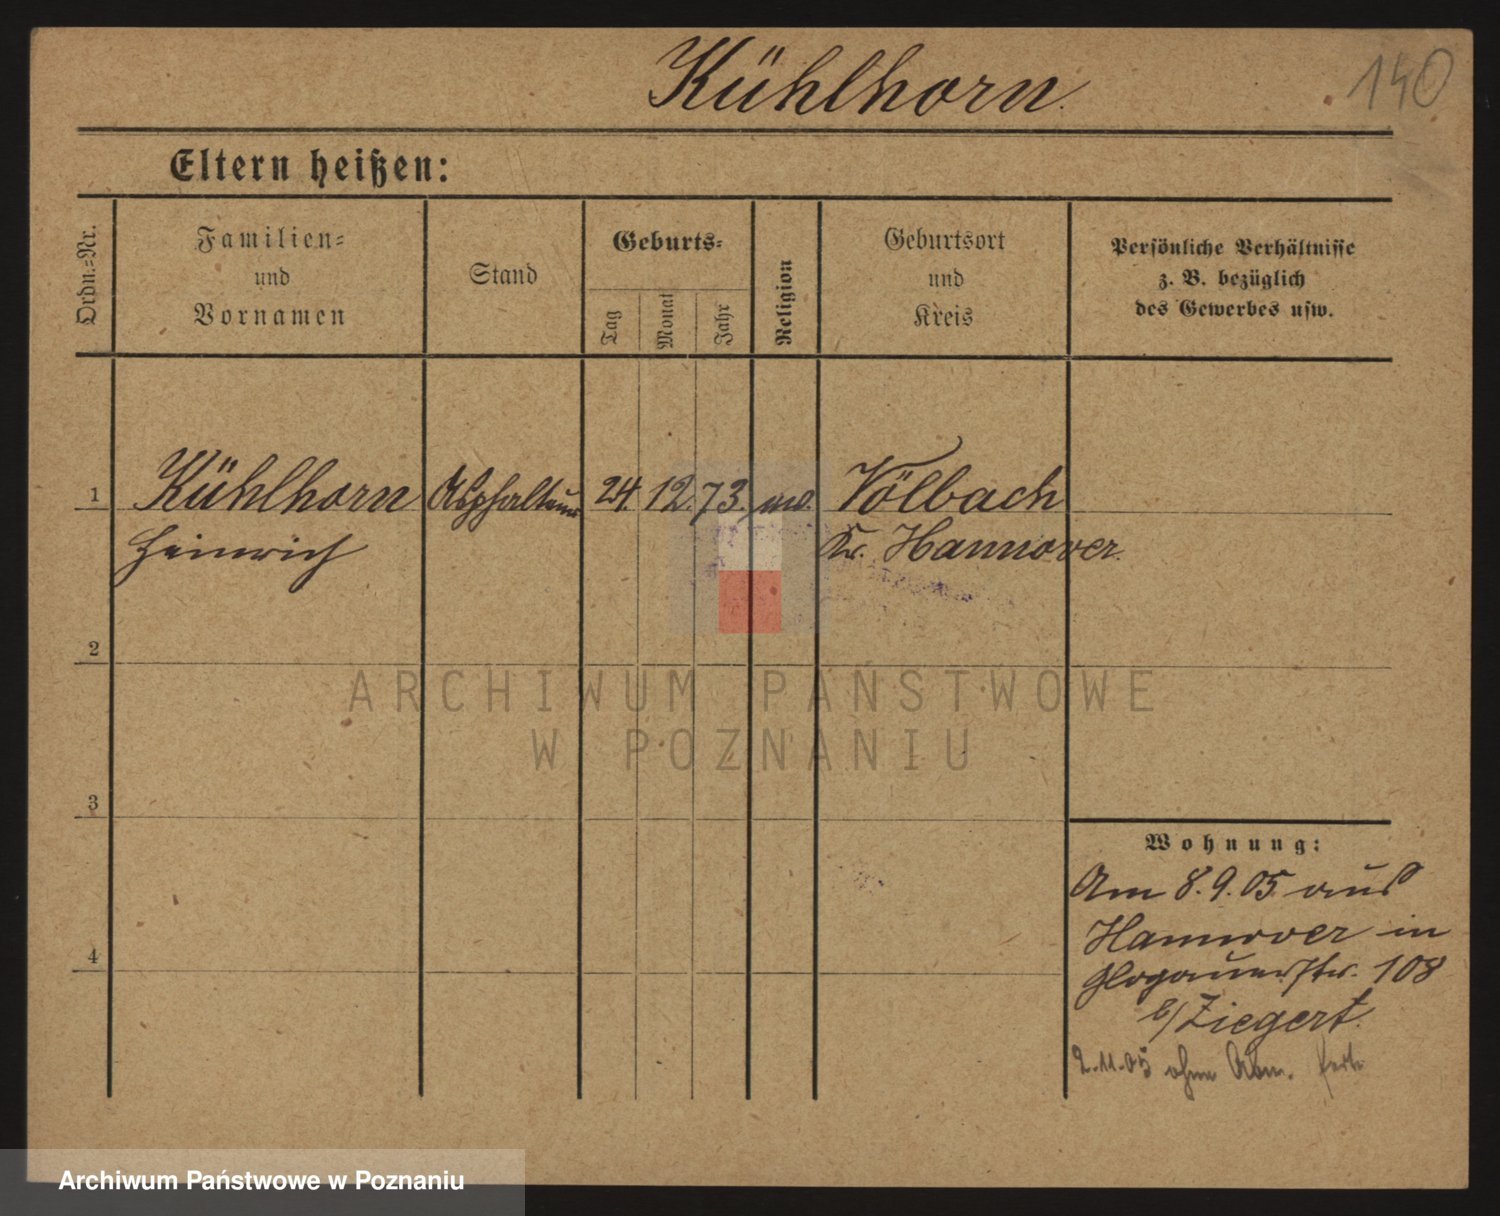 Kühlhorn.
140
Eltern heißen:
Ordn.=Nr.
Familien=
und
Vornamen
Stand
Geburts=
Tag
Monat
Jahr
Religion
Geburtsort
und
Kreis
Persönliche Verhältnisse
z. B. bezüglich
des Gewerbes usw.
1
Kühlhorn
24. 12. 73.
Völbach
Heinrich
Kr. Hannover.
2
ARCHIWUM PAŃSTWOWE
W POZNANIU
3
Wohnung:
Am 8.9.05 aus
Hannover in
Glogauerstr. 108
b/Ziegert.
4
2.11.05 ohne Abm.
Archiwum Państwowe w Poznaniu